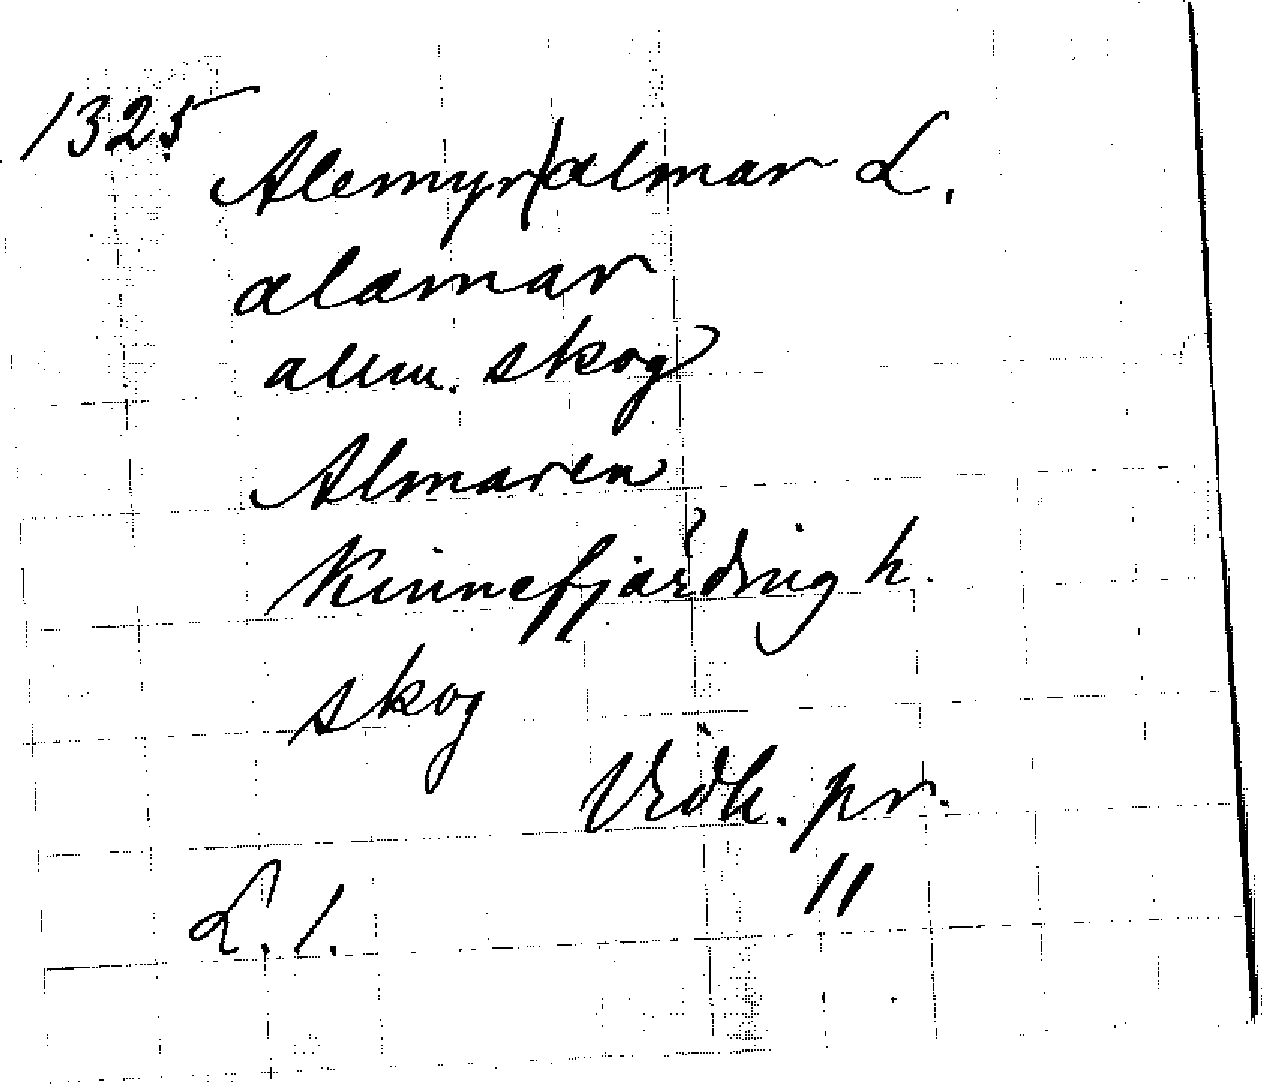 1325
Alemyr/almar L.
alamar
allm. skog
Almaren
Kinnefjärding h.
skog
Vedh. pr.
"
L. 1.